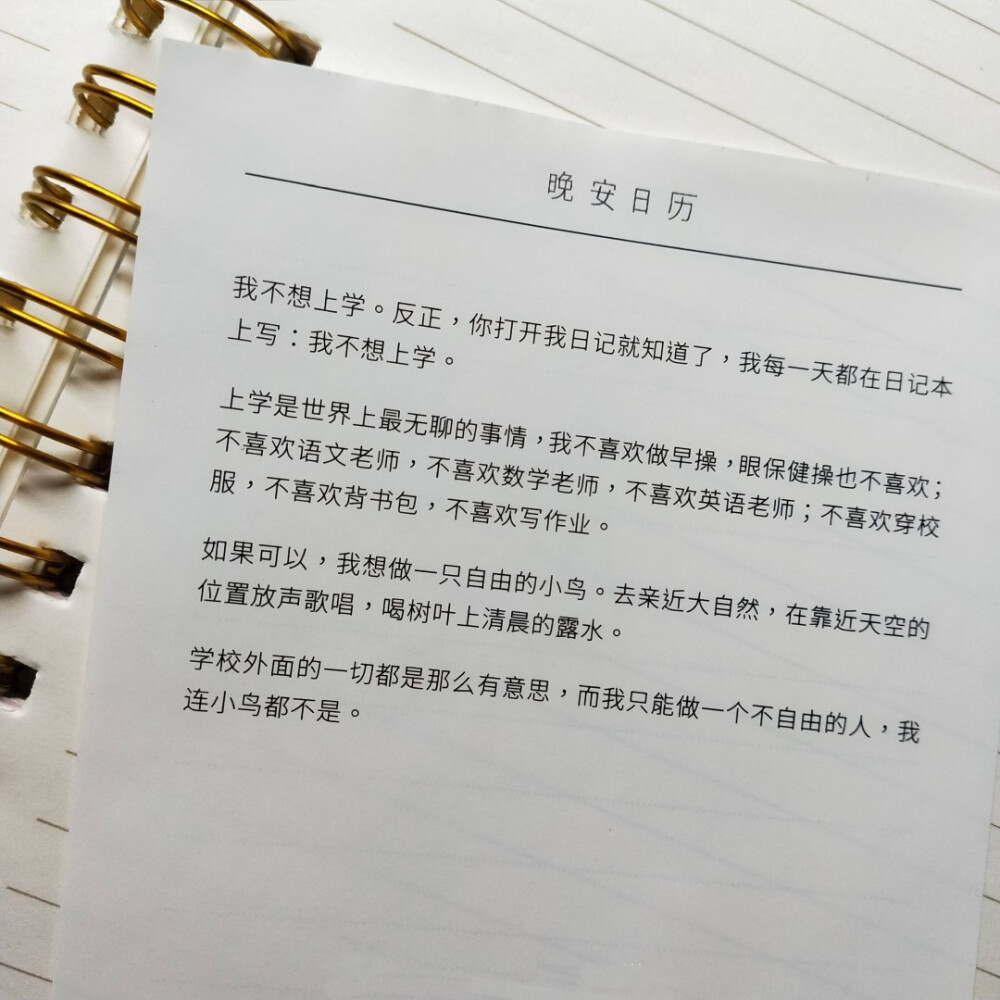 晚安日历
我不想上学。反正，你打开我日记就知道了，我每一天都在日记本
上写：我不想上学。
上学是世界上最无聊的事情，我不喜欢做早操，眼保健操也不喜欢；
不喜欢语文老师，不喜欢数学老师，不喜欢英语老师；不喜欢穿校
服，不喜欢背书包，不喜欢写作业。
如果可以，我想做一只自由的小鸟。去亲近大自然，在靠近天空的
位置放声歌唱，喝树叶上清晨的露水。
学校外面的一切都是那么有意思，而我只能做一个不自由的人，我
连小鸟都不是。